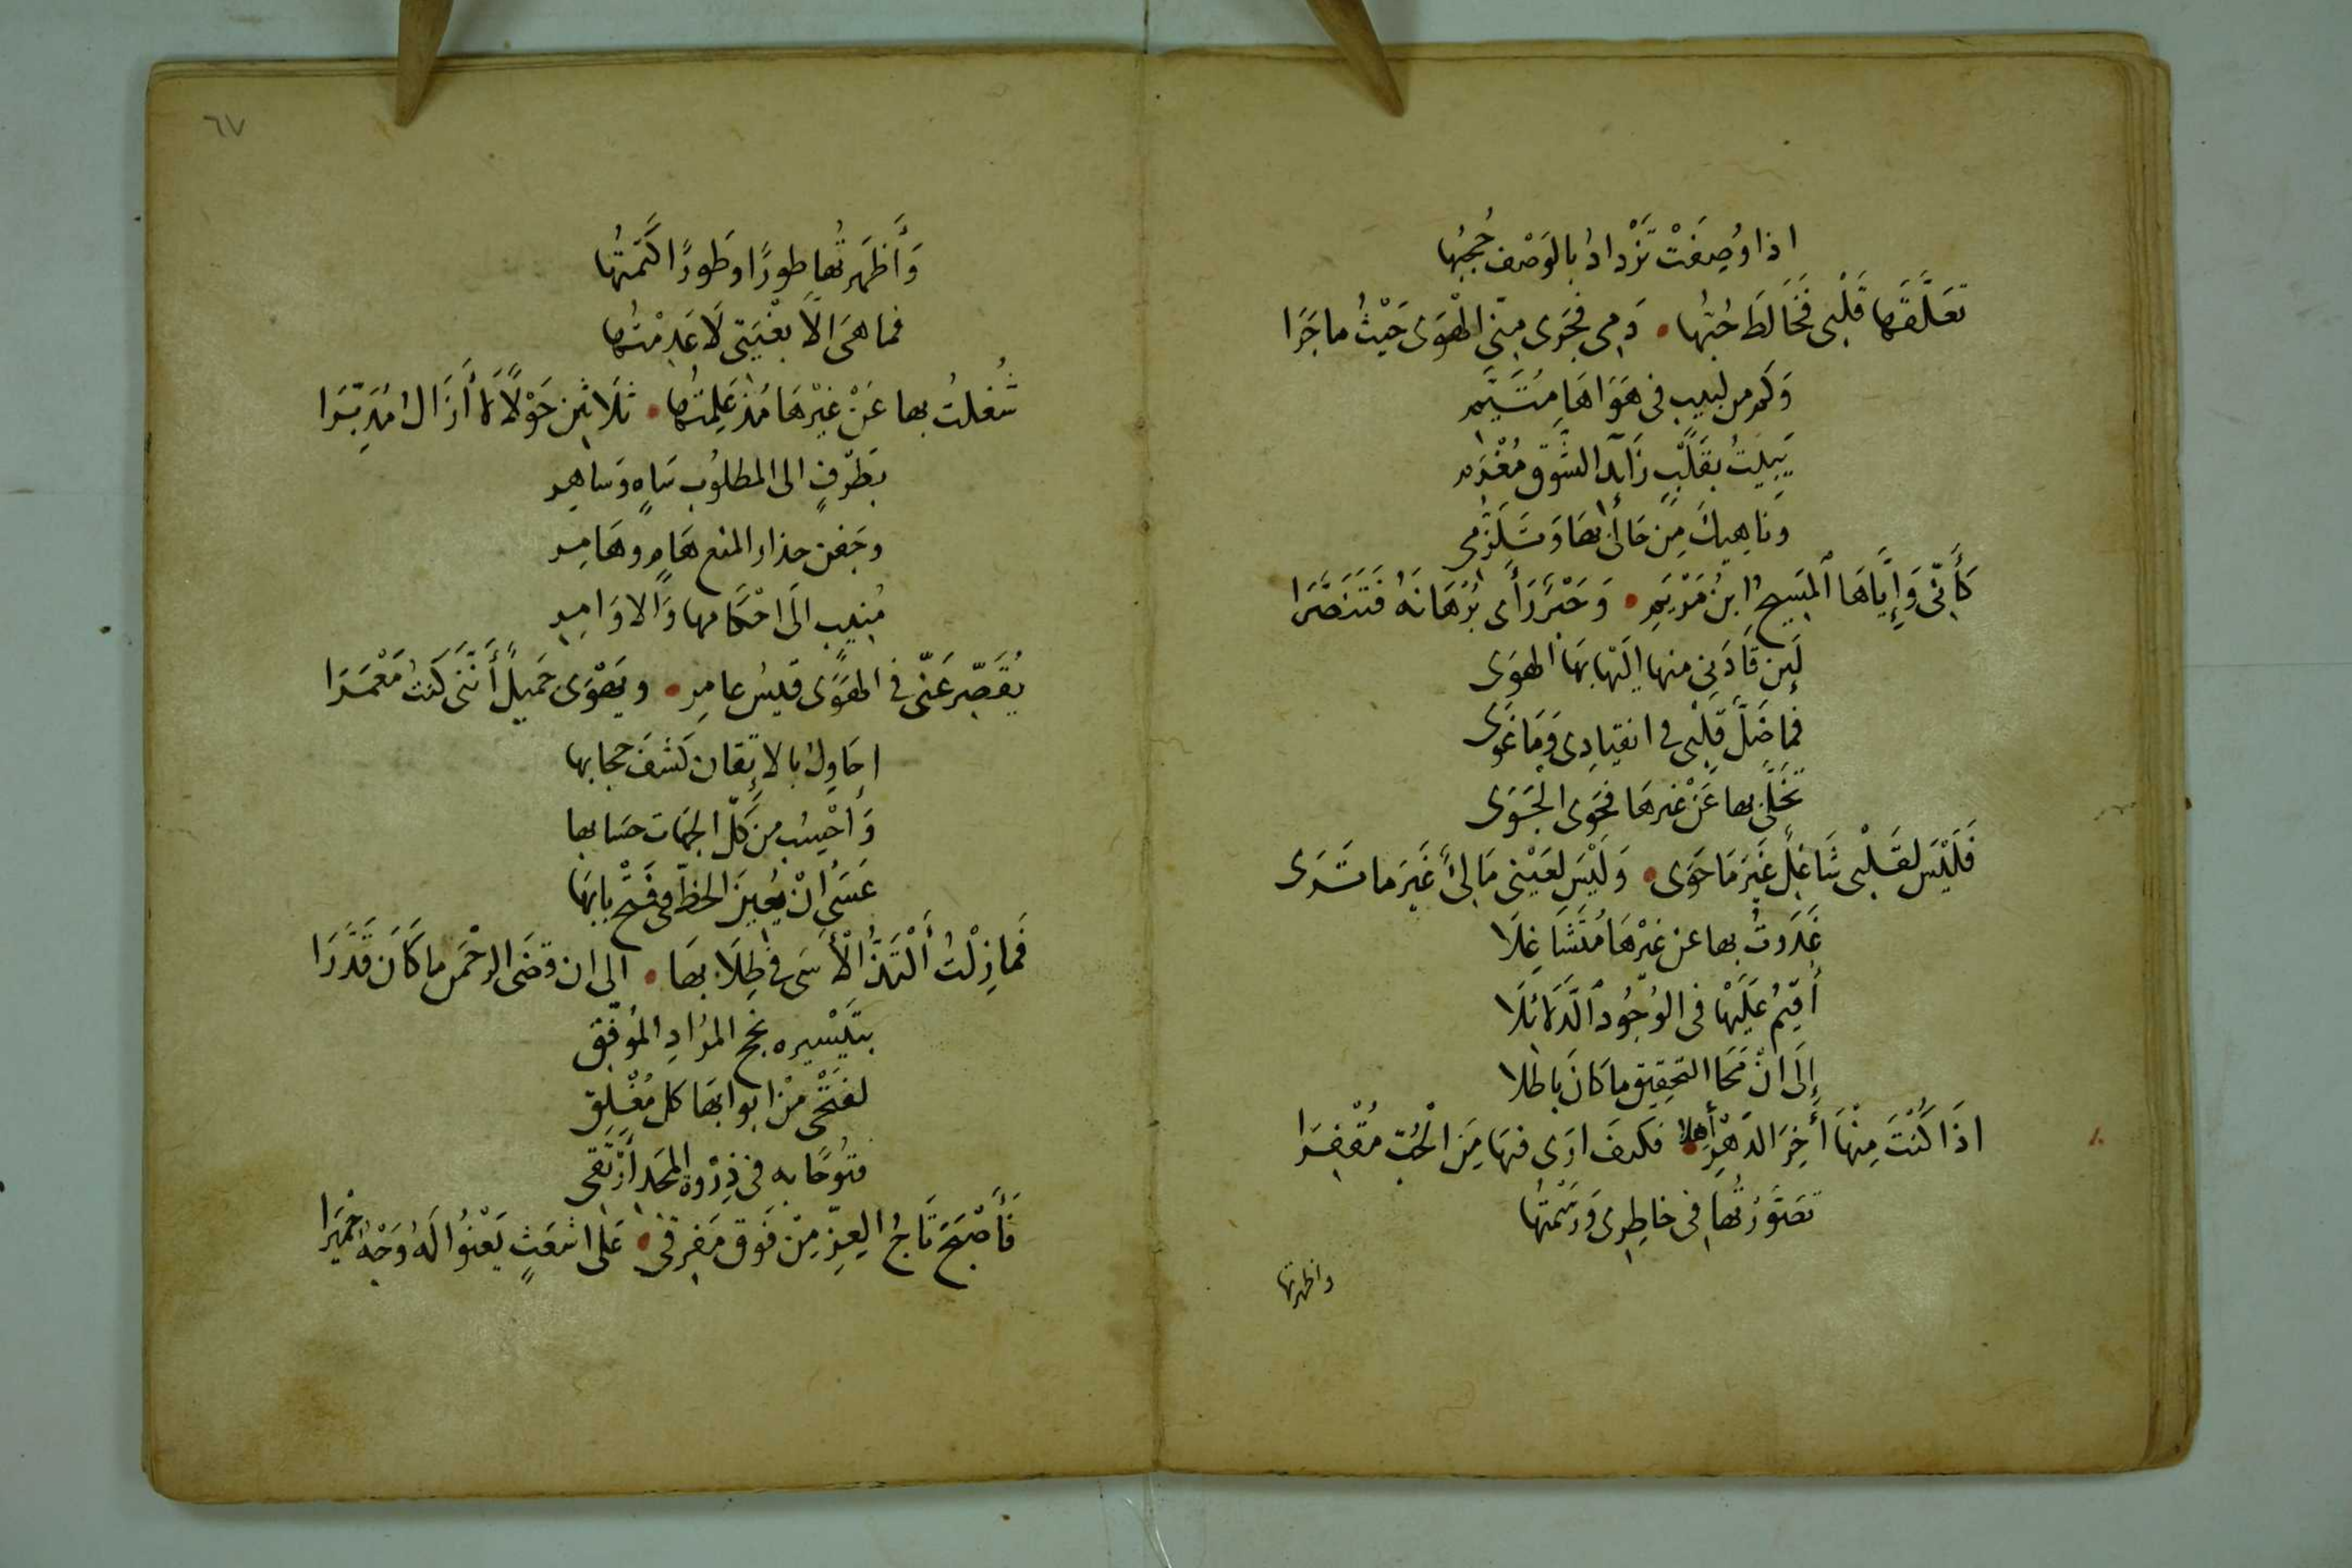 اذا وُصِفَتْ تَزْدادُ بالوَصْف حُجبُها
تعَلَّقَها قَلْبى فَخَالَطَ حُبّها • دَمِى فجَرى مِنّى الْهَوَى حَيْثُ ما جَرَا
وَكم من لبيب فى هَوَاهَا مُتَيَّمِ
يَبِيتُ بقَلْبٍ زَايد الشَّوْق مُغْرَمِ
ونَاهِيكَ مِن حَالى بهَا وَتَلزُّمى
كَأَنّى وَإِيَّاهَا المَسِيحُ ابنُ مَرْيَمِ • وَحَبْر رَأَى بُرْهَانَهُ فَتَنَصَّرَا
لَئِن قَادَنِى منها اليْها بهَا الهوَى
فَمَا ضَلَّ قَلْبى فى انقيادِى وَمَا غَوَى
تخَلّى بها عَنْ غيرهَا فحَوى الجَوَى
فَلَيْسَ لقَلْبى شَاغِلٌ غَيْرَ مَا حَوَى • وَلَيْسَ لعَيْنى مَالِئٌ غَيْرَ ما تَرَى
غَدَوتُ بها عن غيْرهَا مُتَشَاغِلَا
أُقِيمُ عَلَيْهَا فى الوُجُود الدَّلَائلَا
إِلَى انْ مَحَا التحقيق ما كانَ باطلا
اذَا كُنْتَ مِنْهَا أَخِرَ الدَهْرِ أهِلا • فكيفَ ارَى فيهَا مِنَ الْحُبّ مُقْفِرَا
تصَوَّرْتُها فى خاطِرِى وَرَسَمْتُها
واظهرتها
٦٧
وَأَظهَرتُها طورًا وطَورًا كَتَمتُها
فما هىَ الاّ بغْيَتى لَا عَدِمْتُها
شُغلتُ بها عَنْ غيْرهَا مُذ عَلِمتُها • ثَلَاثِين حَوْلًا لَا أَزَالُ مُدَبّرَا
بطَرْفٍ الى المطلوُب سَاهٍ وَسَاهِرِ
وجَفن حذار المنع هَامٍ وهَامِرِ
مُنِيب الَى احْكَامها وَالاوَامِرِ
يُقَصّر عَنّى فى الهَوَى قيْسُ عامِرِ • ويَهْوَى جَميلٌ أَنّنى كنتُ مَعْمَرَا
احَاوِلُ بالاِتقان كَشفَ حجابها
وَاحْسِبُ من كُلّ الجهَات حسَابها
عَسَى انْ يُعِينَ الحَظّ فى فَتْحِ بابِهَا
فَما زِلْتُ أَلْتَذُّ الأَسَى فى طِلَابهَا • الى ان قضَى الرحْمَن ما كَانَ قَدَّرَا
بتَيْسِيره نجح المرَادِ المُوَفّقِ
لفَتْحى مِنْ ابوابهَا كل مُغْلقِ
فتُوحًا به فى ذِرْوَة المجَد أَرْتَقى
فأَصْبَحَ تَاجُ العِزّ مِنْ فَوْق مَفرِقى • عَلَى اشعَثٍ يَعْنُوا لَهُ وَجْهُ حِمْيَرا